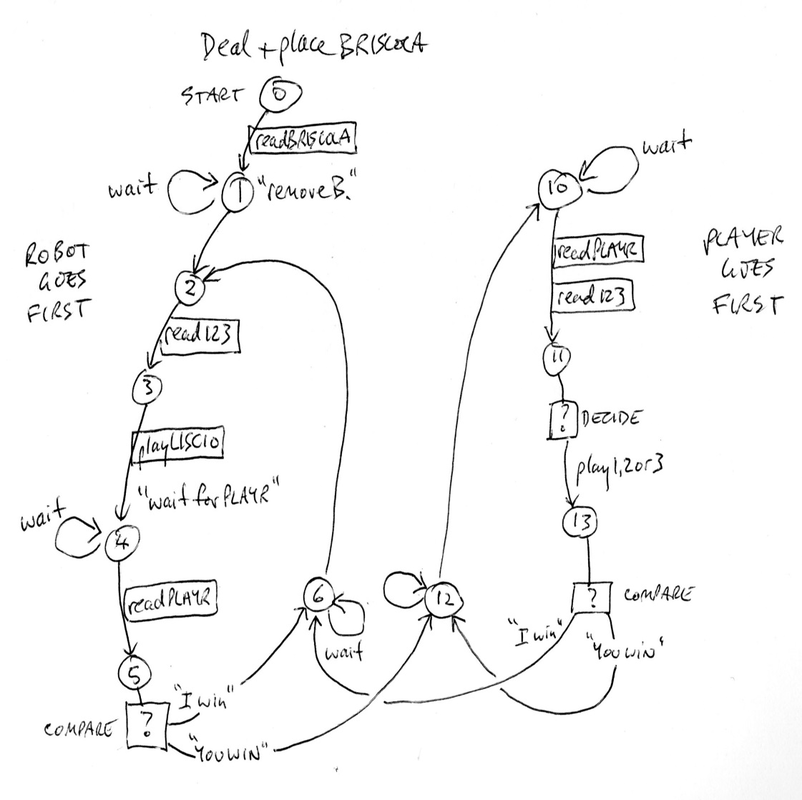 Deal + place BRISCOLA
START 0
readBRISCOLA
wait 1 "remove B."
ROBOT
GOES
FIRST
2
read123
3
playLISCIO
"wait for PLAYR"
wait
4
readPLAYR
5
COMPARE ?
"I win"
"YOU WIN"
6
wait
12
10 wait
readPLAYR
read123
PLAYER
GOES
FIRST
11
? DECIDE
play1,2or3
13
? COMPARE
"I win"
"YOU WIN"